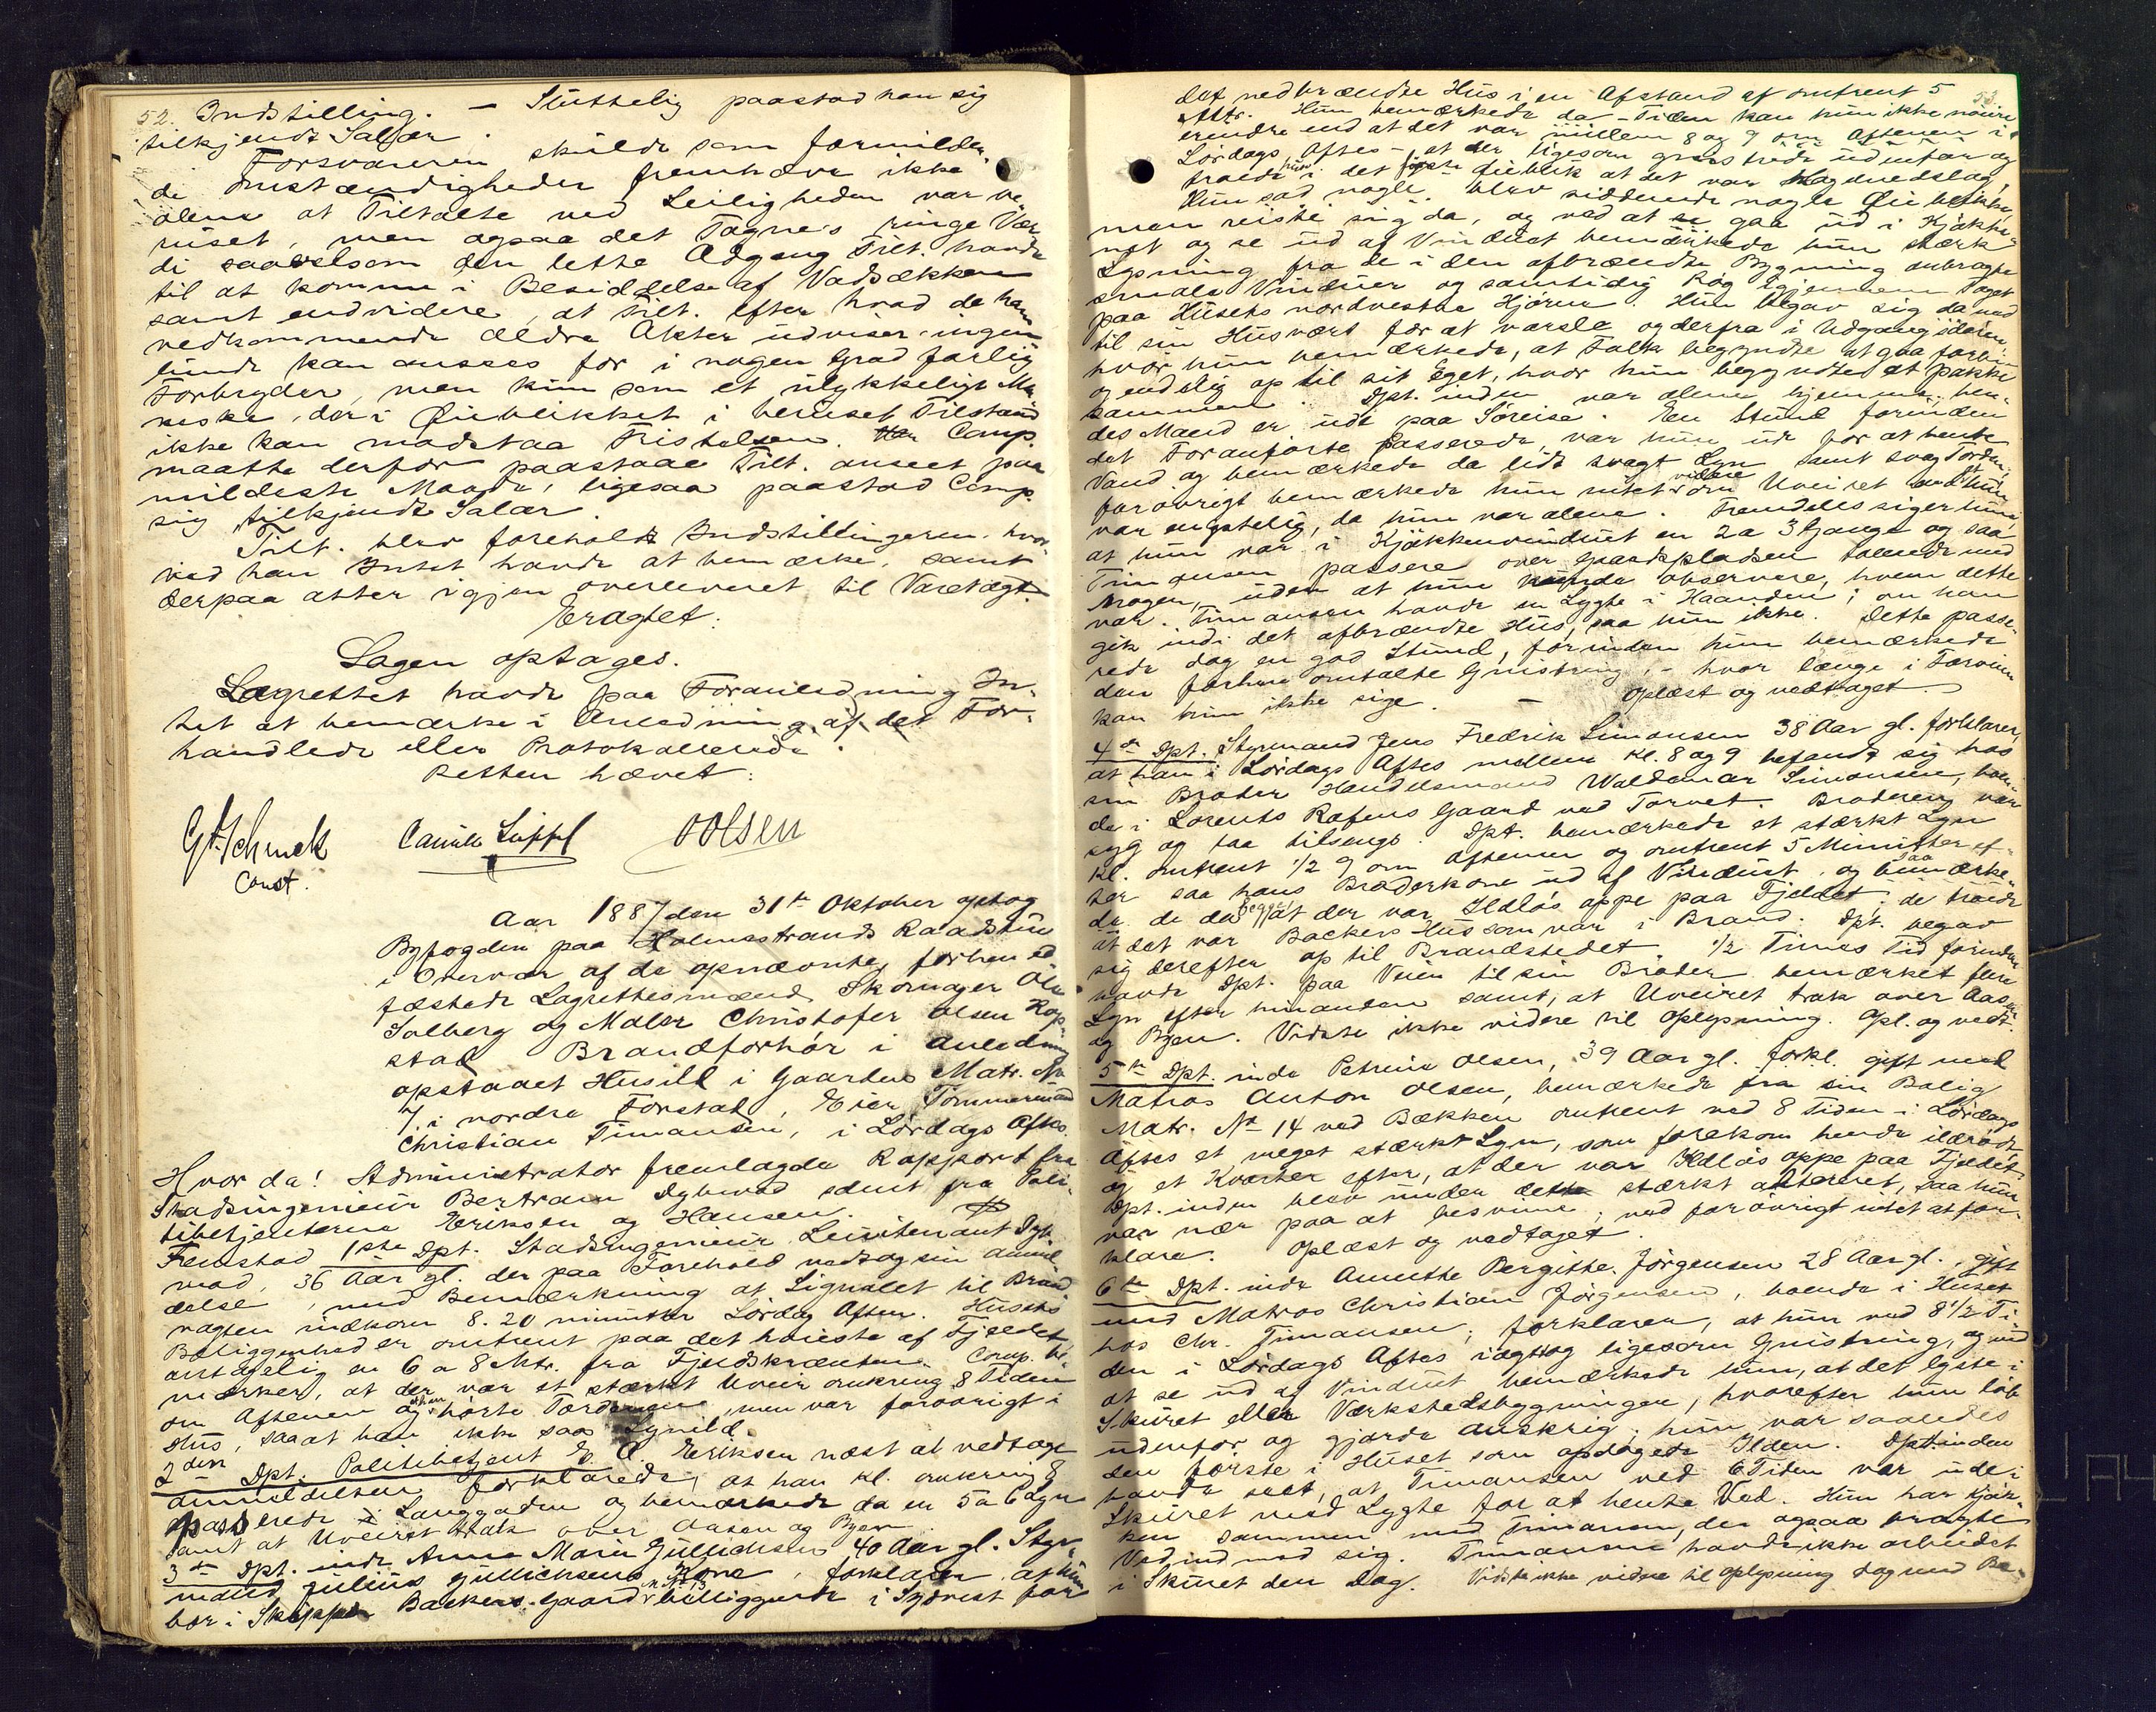 52. Indstilling. — Sluttelig paastod han sig
tilkjendt Salær.
Forsvareren skulde som formilden-
de Omstændigheder fremhæve ikke
alene at Tiltalte ved Leiligheden var be-
ruset, men ogsaa det Tagnes ringe Vær
di saavelsom den lette Adgang Tilt. havde
til at komme i Besiddelse af Vadsækken
samt endvidere, at Tilt. efter hvad de ham
vedkommende ældre Akter udviser ingen
lunde kan ansees for i nogen Grad farlig
Forbryder, men kun som et ulykkeligt Me
neske, der i Øieblikket i beruset Tilstand
ikke kan modstaa Fristelsen. Comp.
maatte derfor paastaae Tilt. anseet paa
mildeste Maade, ligesaa paastod Comp.
sig tilkjendt Salær.
Tilt. blev foreholdt Indstillingeren, hvor-
ved han Intet havde at bemærke, samt
derpaa atter igjen overleveret til Varetægt.
Eragtet:
Sagen optages.
Lagrettet havde paa Foranledning In-
tet at bemærke i Anledning af det For-
handlede eller Protokollerede.
Retten hævet:
G. Schmck Camilo Lippl OOlsen
Const.
Aar 1887 den 31te Oktober optog
Byfogden paa Holmestrands Raadstue
i Overvær af de opnævnte, forhen ed
fæstede Lagrettesmænd Skomager Ole
Solberg og Maler Christofer Olsen Rop
stad Brandforhør i Anledning
opstaaet Husild i Gaarden Matr. No
7. i nordre Forstad, Eier Tømmermand
Christian Timansen, i Lørdags Aftes.
Hvor da! Administrator fremlagde Rapport fra
Stadsingeniør Bertram Dybwad samt fra Poli-
tibetjenterne Eriksen og Hansen.
Fremstod 1ste Dpt. Stadsingeniør Leuitenant Dyb
wad, 36 Aar gl. der paa Forehold vedtog sin anmel
delse, med Bemærkning at Signalet til Brand
vagten indkom 8.20 minutter Lørdag Aften. Husets
Beliggenhed er omtrent paa det høieste af Fjeldet
antagelig en 6 a 8 Mtr. fra Fjeldskrænten. Comp. be-
mærker, at der var et stærkt Uveir omkring 8 Tiden
om Aftenen og han hørte Tordenen, men var forøvrigt i
Hus, saaat han ikke saa Lynild.
2den Dpt. Politibetjent E. A. Eriksen næst at vedtage
anmeldelsen forklarede, at han kl. omkring 8
passerede i Langgaden og bemærkede da en 5 a 6 Lyn
samt at Uveiret trak over Aasen og Byen.
3die Dpt. inde Anne Marie Gullichsen 40 Aar gl. Styr-
mand Julius Gullichsens Kone, forklarer, at hun
bor i Skipper Backers Gaard M. No 13 beliggende i Sydvest for
53
det nedbrændte Hus i en Afstand af omtrent 5
Mtr. Hun bemærkede da — Tiden kan hun ikke nøiere
erindre end at det var mellem 8 og 9 om Aftenen i
Lørdags Aftes —, at der ligesom gnistrede udenfor og
troede hun i det første Øieblik at det var Hagnedslag,
Hun sad nogle blev siddende nogle Øieblikke,
men reiste sig da, og ved at gaa ud i Kjøkke-
net og se ud af Vinduet bemærkede hun stærk
Lysning fra de i den afbrændte Bygning anbragte
smale Vinduer og samtidig Røg igjennem Taget
paa Husets nordvestre Hjørne. Hun begav sig da ned
til sin Husvært for at varsle og derfra i Udgangsdøren,
hvor hun bemærkede, at Folk begyndte at gaa forbi
og endelig op til sit eget, hvor hun begyndte at pakke
sammen. Dpt. inden var alene hjemme, hen-
des Mand er ude paa Søreise. En Stund forinden
det Foranførte passerede, var hun ude for at hente
Vand og bemærkede da lidt svagt Lyn samt svag Torden,
forøvrigt bemærkede hun intet videre om Uveiret end at hun
var ængstelig, da hun var alene. Fremdeles siger hun,
at hun var i Kjøkkenvinduet en 2 a 3 Gange og saa
Timansen passere over Gaardspladsen talende med
Nogen, uden at hun kunde observere, hvem dette
var. Timansen havde en Lygte i Haanden; om han
gik ind i det afbrændte Hus, saa hun ikke. Dette passe-
rede dog en god Stund, forinden hun bemærkede
den forhen omtalte Gnistring, — hvor længe i Forveien
kan hun ikke sige. — Oplæst og vedtaget.
4de Dpt. Styrmand Jens Fredrik Simonsen 38 Aar gl. forklarer,
at han i Lørdags Aftes mellem Kl. 8 og 9 befandt sig hos
sin Broder Handelsmand Waldemar Simonsen, boen-
de i Lorents Rafens Gaard ved Torvet. Broderen var
syg og laa tilsengs. Dpt. bemærkede et stærkt Lyn
Kl. omtrent 1/2 9 om Aftenen og omtrent 5 Minutter ef-
ter saa hans Broderkone ud af Vinduet, og saa bemærke-
de de da begge at der var Ildløs oppe paa Fjeldet; de troede
at det var Backers Hus som var i Brand. Dpt. begav
sig derefter op til Brandstedet. 1/2 Times Tid forinden
havde Dpt. paa Veien til sin Broder bemærket flere
Lyn efter hinanden samt, at Uveiret trak over Aasen
og Byen. Vidste ikke videre til Oplysning. Opl. og vedt.
5te Dpt. inde Petrine Olsen, 39 Aar gl. forkl. gift med
Matros Anton Olsen, bemærkede fra sin Bolig
Matr. No 14 ved Bækken omtrent ved 8 Tiden i Lørdags
Aftes et meget stærkt Lyn, som forekom hende ildrødt,
og et Kvarter efter, at der var Ildløs oppe paa Fjeldet.
Dpt. inden blev under dette stærkt altereret, saa hun
var nær paa at besvime; ved forøvrigt intet at for-
klare. Oplæst og vedtaget.
6te Dpt. inde Anette Bergitte Jørgensen 28 Aar gl., gift
med Matros Christian Jørgensen, boende i Huset
hos Chr. Timansen; forklarer, at hun ved 8 1/2 Ti-
den i Lørdags Aftes iagttog ligesom Gnistring, og ved
at se ud af Vinduet bemærkede hun, at det lyste i
Skuret eller Værkstedsbygningen, hvorefter hun løb
udenfor og gjorde Anskrig; hun var saaledes
den første i Huset som opdagede Ilden. Dpt. inden
havde seet, at Timansen ved 6 Tiden var ude i
Skuret med Lygte for at hente Ved. Hun har Kjøk-
ken sammen med Timansen, der ogsaa bragte
Ved ind med sig. Timansen havde ikke arbeidet
i Skuret den Dag. Vidste ikke videre til Oplysning dog med Be-